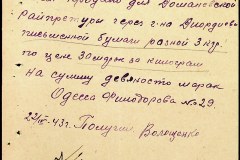 продано для Доманевской
райпрефектуры через г-на Джордиева
писчебумаги разной 3 кгр.
по цене 30 марок за килограм
на сумму девяносто марок
Одесса Финодорова № 29.
22/IX-43г. Получил Волощенко